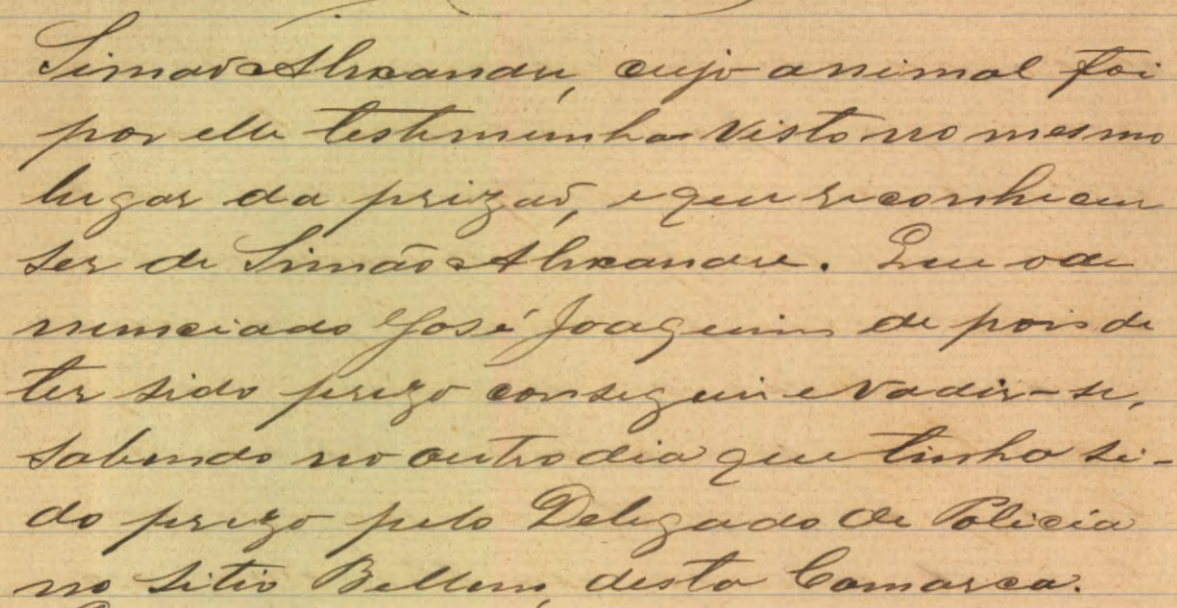 Simão Alexandre, cujo animal foi
por elle testimunha visto no mesmo
lugar da prizaõ, e que reconheceu
ser de Simão Alexandre. Que o de
nunciado José Joaquim de pois de
ter sido prezo conseguiu evadir-se,
sabendo no outro dia que tinha si-
do prezo pelo Delegado de Policia
no sitio Bellem, desta Comarca.